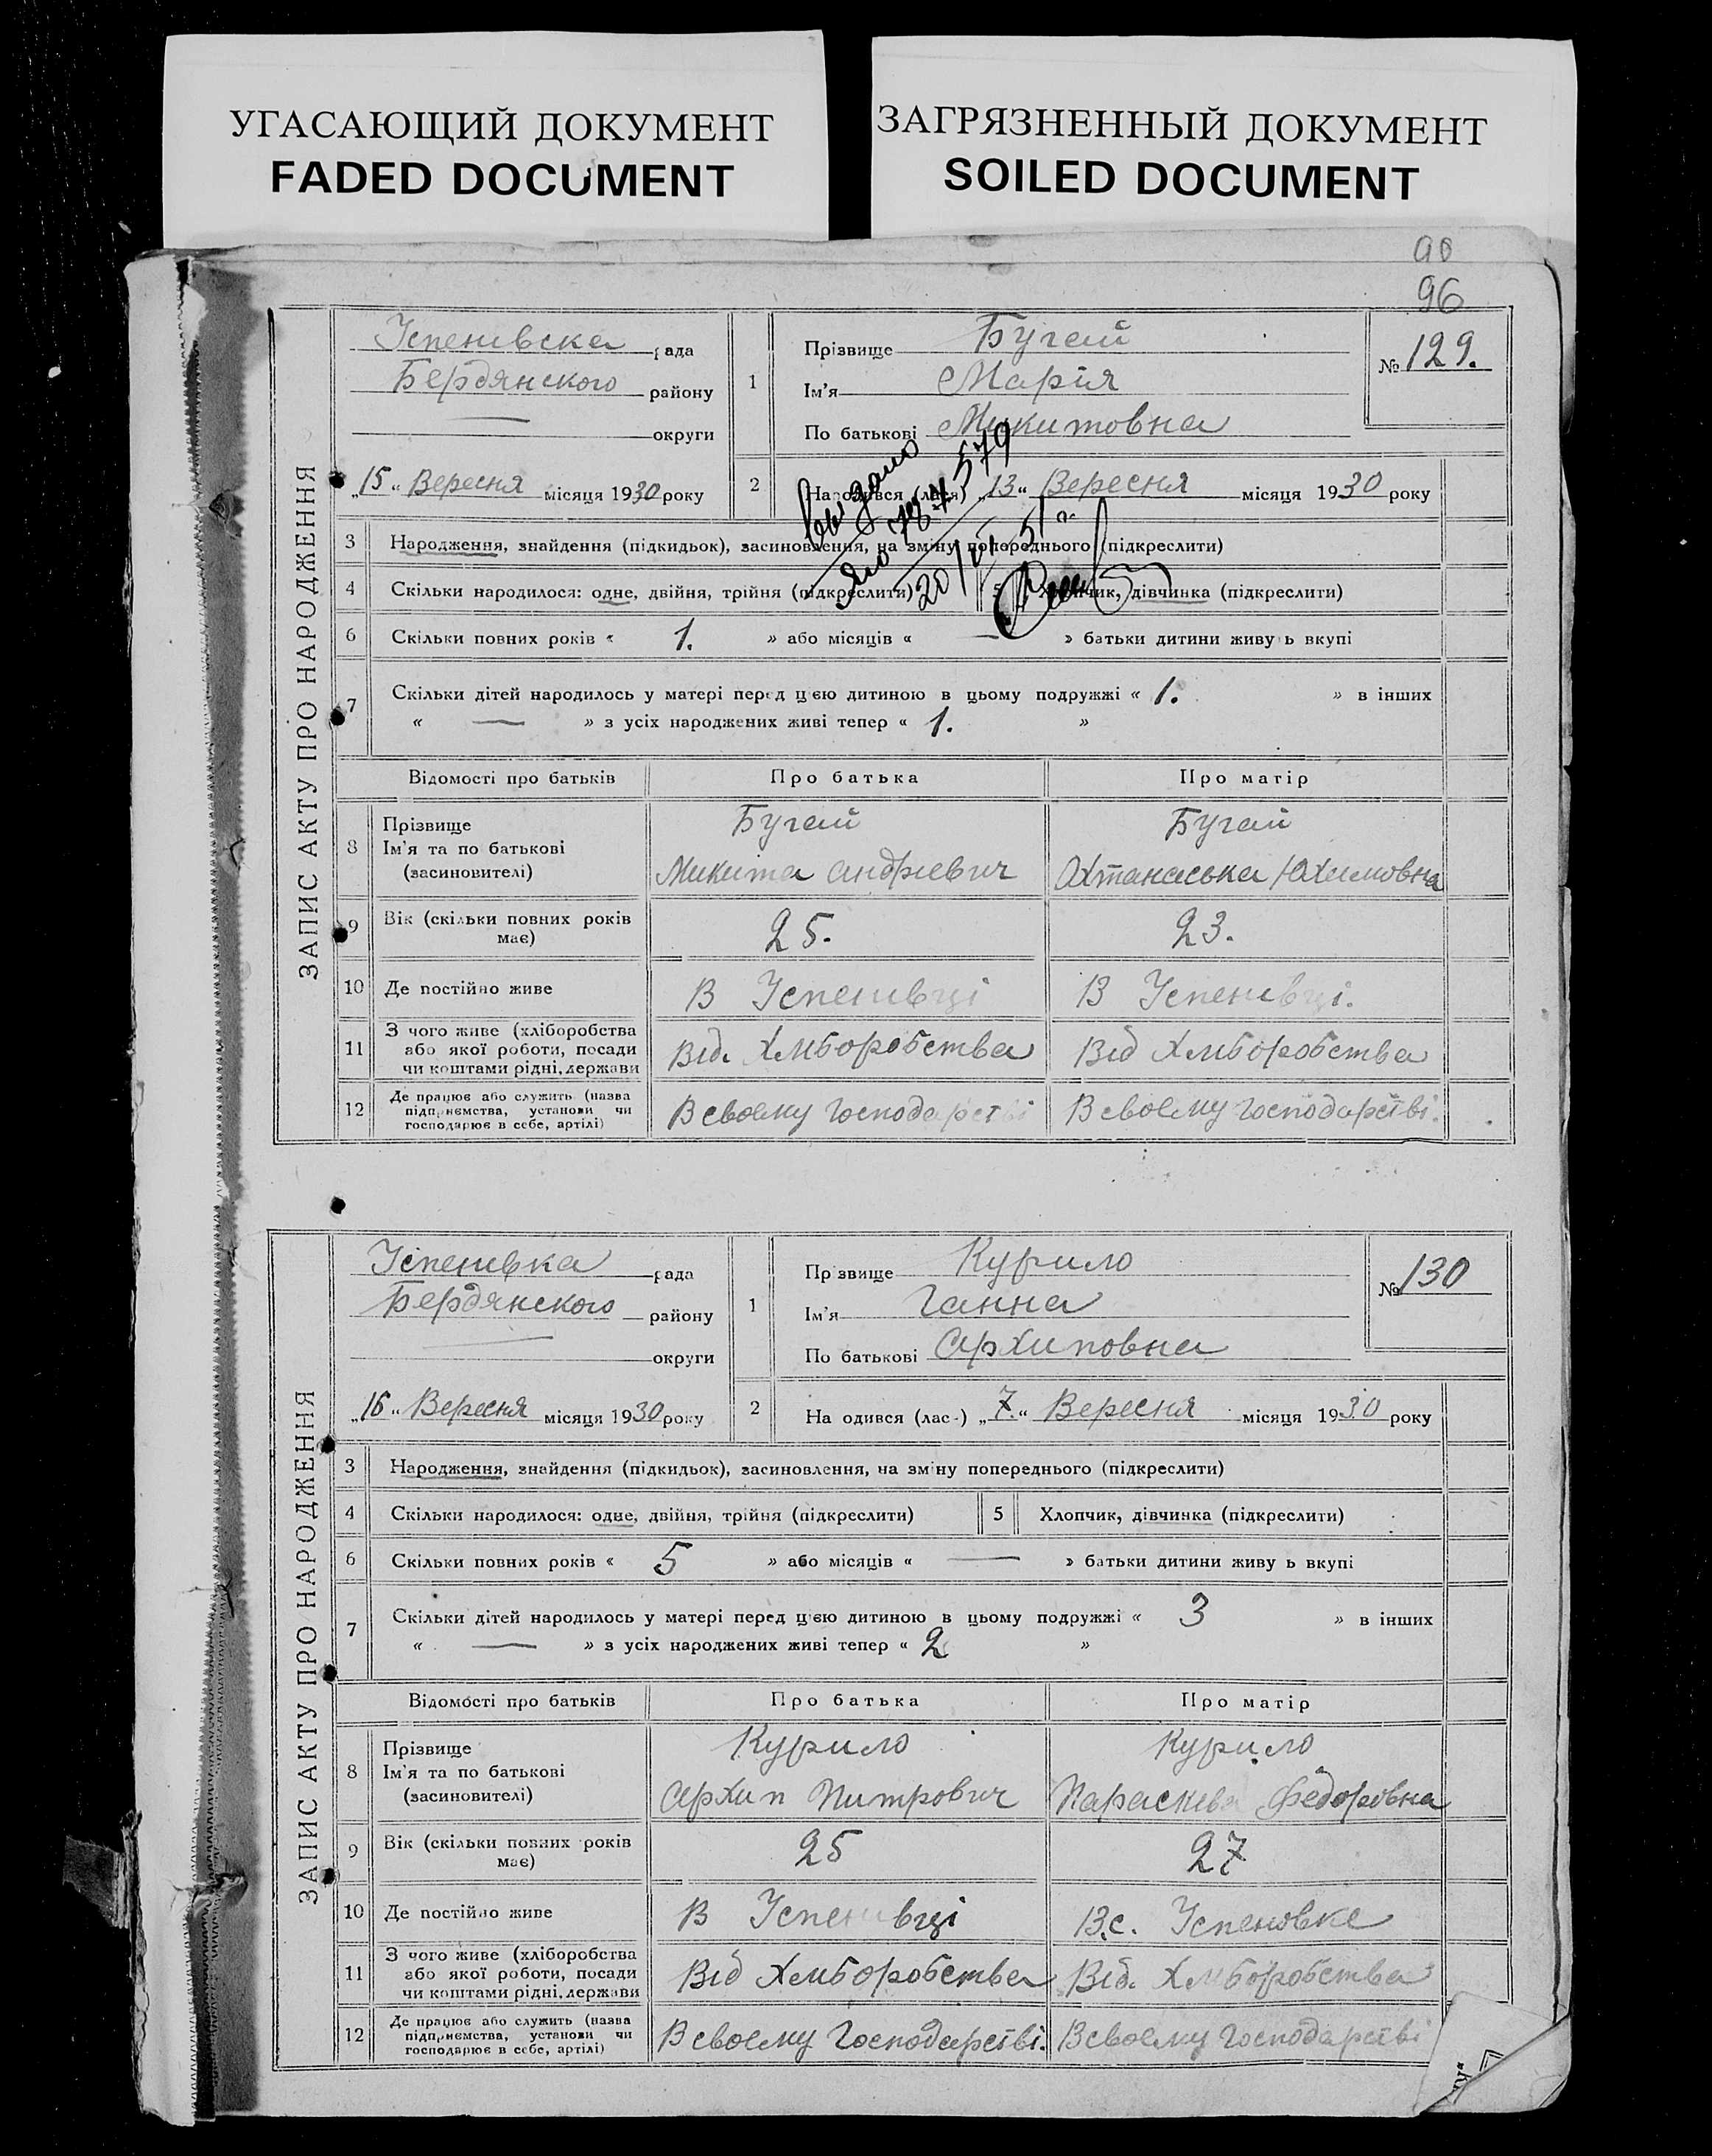 УГАСАЮЩИЙ ДОКУМЕНТ
FADED DOCUMENT
ЗАГРЯЗНЕННЫЙ ДОКУМЕНТ
SOILED DOCUMENT
90
96
ЗАПИС АКТУ ПРО НАРОДЖЕННЯ
Успенивска рада
Бердянского району
— округи
„15“ Вересня місяця 1930 року
1
Прізвище Бугай
Ім'я Марія
По батькові Микитовна
№ 129.
2 Народився (лася) „13“ Вересня місяця 1930 року
выдано
яю № 579
20/VI 51 г.
3 Народження, знайдення (підкидьок), засиновлення, на зміну попереднього (підкреслити)
4 Скільки народилося: одне, двійня, трійня (підкреслити) 5 Хлопчик, дівчинка (підкреслити)
6 Скільки повних років « 1. » або місяців « — » батьки дитини живу ь вкупі
7 Скільки дітей народилось у матері перед цією дитиною в цьому подружжі « 1. » в інших
« — » з усіх народжених живі тепер « 1. »
Відомості про батьків Про батька Про матір
8 Прізвище
Ім'я та по батькові
(засновителі)
Бугай
Микита Андріевич
Бугай
Юхимовна
9 Вік (скільки повних років має) 25. 23.
10 Де постійно живе В Успенивці В Успенивці.
11 З чого живе (хліборобства
або якої роботи, посади
чи коштами рідні, держави
Від. Хлиборобства Від Хлиборобства
12 Де працює або служить (назва
підприємства, установи чи
господарює в себе, артілі)
В своєму господарстві В своєму господарстві.
ЗАПИС АКТУ ПРО НАРОДЖЕННЯ
Успенивка рада
Бердянского району
— округи
„16“ Вересня місяця 1930 року
1
Пр звище Курило
Ім'я Ганна
По батькові Архиповна
№ 130
2 На одився (лас-) „7.“ Вересня місяця 1930 року
3 Народження, знайдення (підкидьок), засиновлення, на зміну попереднього (підкреслити)
4 Скільки народилося: одне, двійня, трійня (підкреслити) 5 Хлопчик, дівчинка (підкреслити)
6 Скільки повних років « 5 » або місяців « — » батьки дитини живу ь вкупі
7 Скільки дітей народилось у матері перед цією дитиною в цьому подружжі « 3 » в інших
« — » з усіх народжених живі тепер « 2 »
Відомості про батьків Про батька Про матір
8 Прізвище
Ім'я та по батькові
(засиновителі)
Курило
Архип Питрович
Курило
Параскева Федоровна
9 Вік (скільки повних років має) 25 27
10 Де постійно живе В Успенивці В с. Успеновке
11 З чого живе (хліборобства
або якої роботи, посади
чи коштами рідні, держави
Від Хлиборобства Від. Хлиборобства
12 Де працює або служить (назва
підприємства, установи чи
господарює в себе, артілі)
В своєму Господарстві. В своєму Господарстві